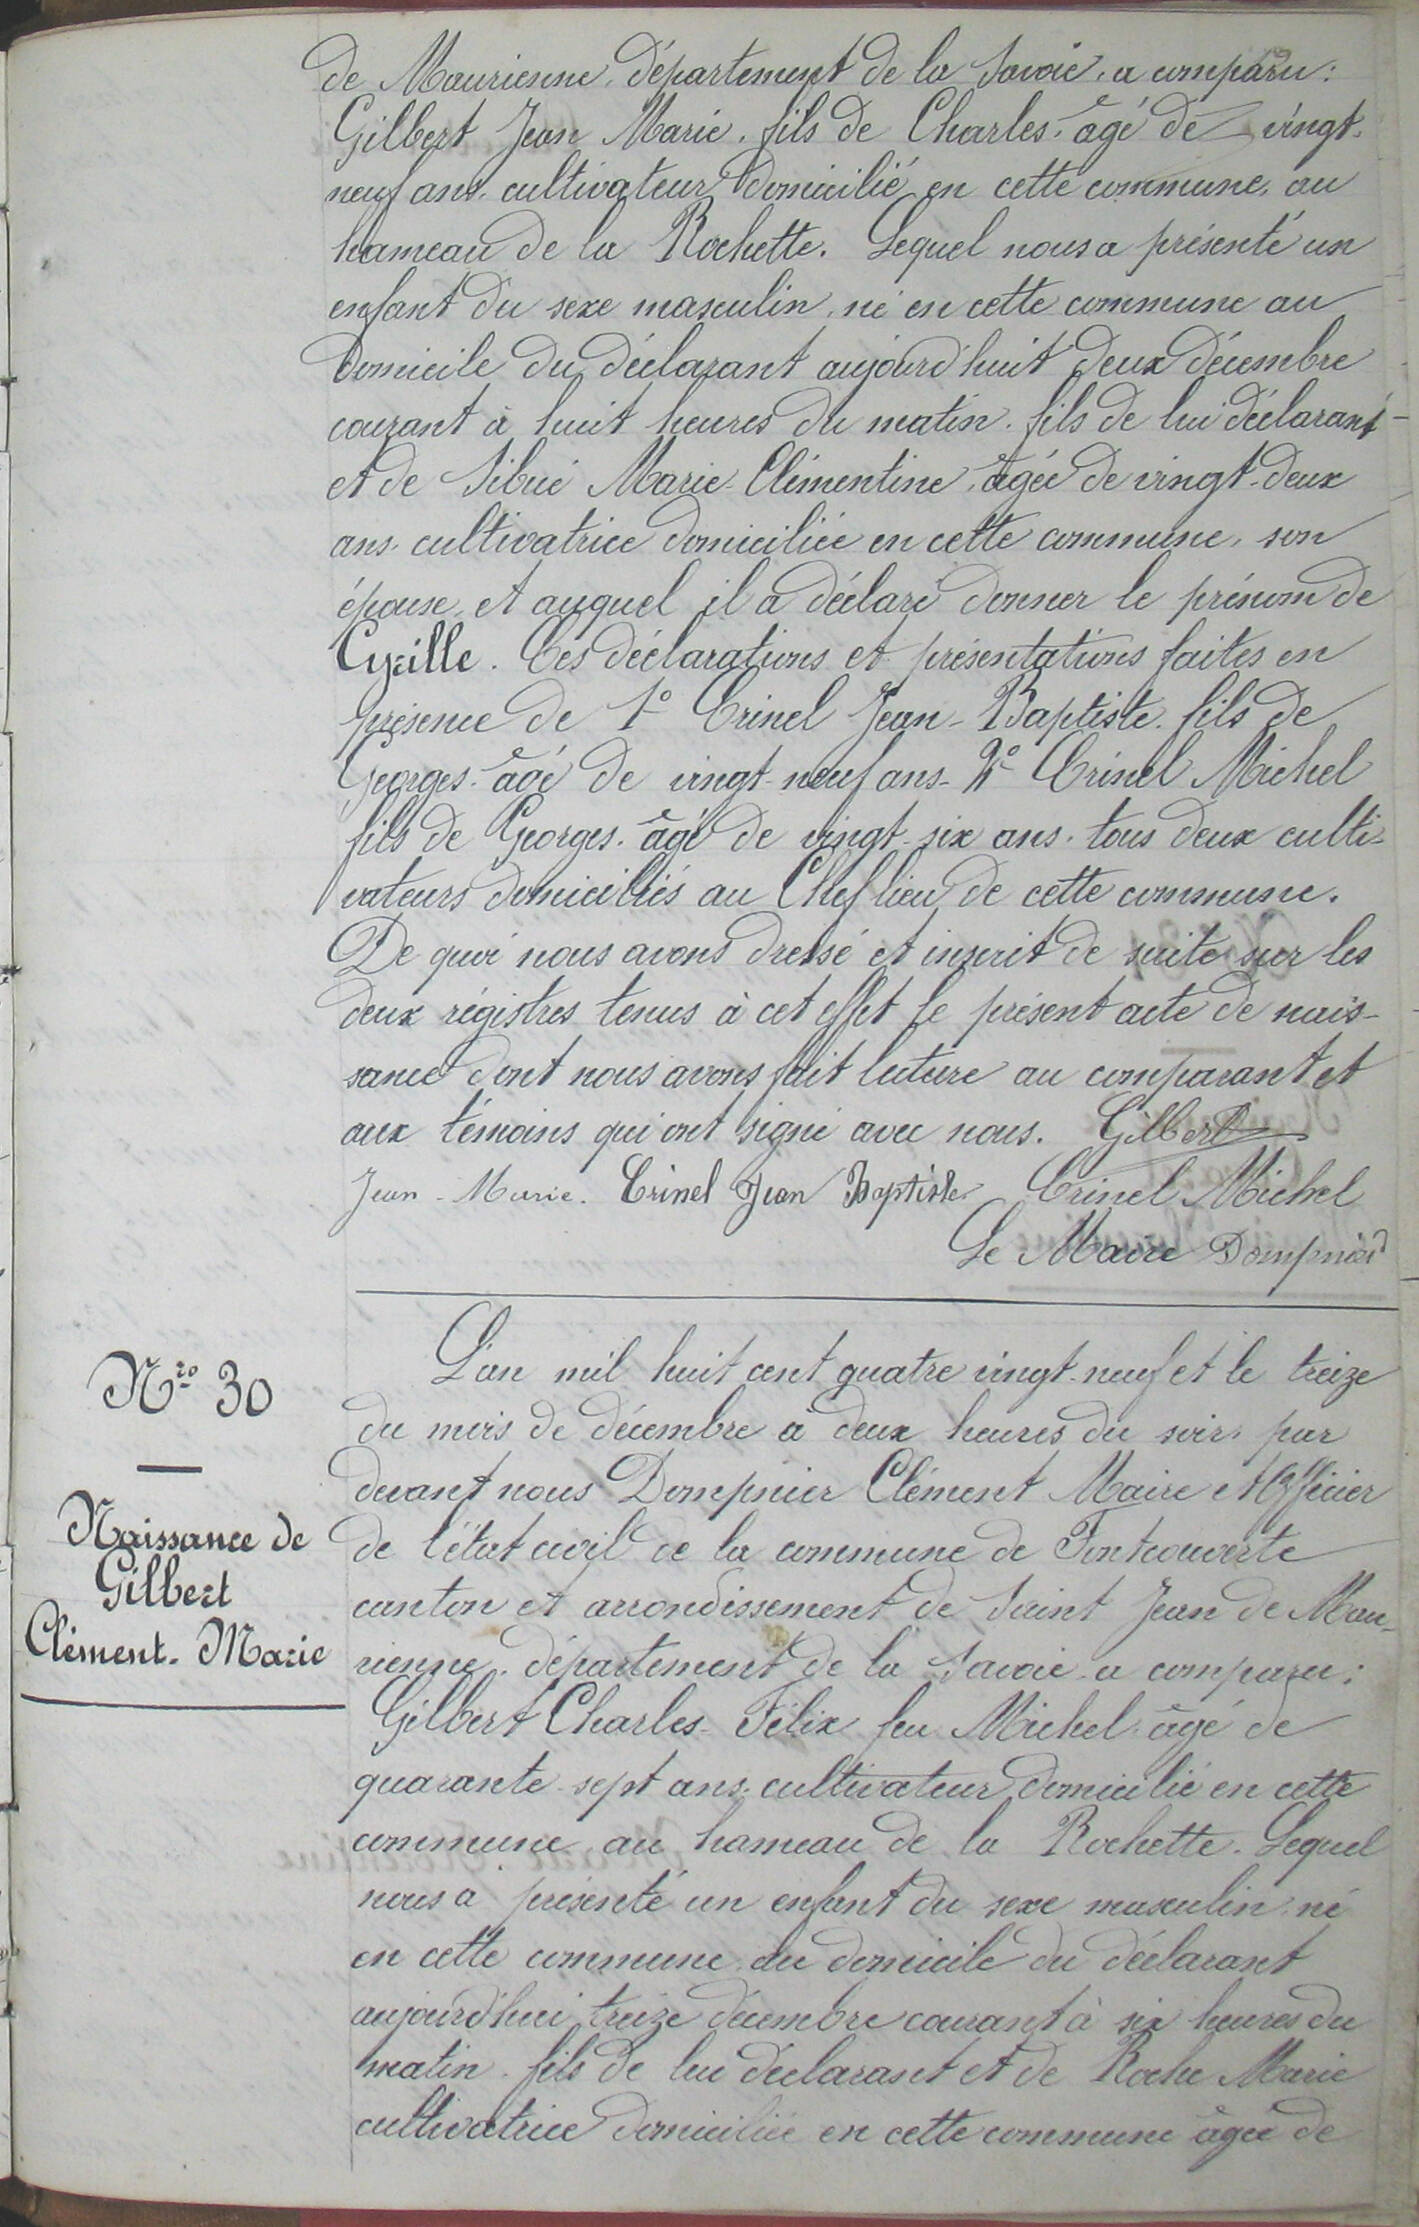 de Maurienne, département de la Savoie, a comparu:
Gilbert Jean Marie, fils de Charles, âgé de vingt-
neuf ans, cultivateur domicilié en cette commune, au
hameau de la Rochette. Lequel nous a présenté un
enfant du sexe masculin, né en cette commune au
domicile du déclarant aujourd'huit deux décembre
courant à huit heures du matin, fils de lui déclarant
et de Sibué Marie-Clémentine, âgée de vingt-deux
ans, cultivatrice domiciliée en cette commune, son
épouse, et auquel il a déclaré donner le prénom de
Cyrille. Ces déclarations et présentations faites en
présence de 1º Crinel Jean-Baptiste, fils de
Georges, âgé de vingt-neuf ans- 2º Crinel Michel
fils de Georges, âgé de vingt-six ans, tous deux culti-
vateurs domiciliés au Chef lieu de cette commune.
De quoi nous avons dressé et inscrit de suite sur les
deux régistres tenus à cet effet le présent acte de nais-
sance dont nous avons fait lecture au comparant et
aux témoins qui ont signé avec nous. Gilbert
Jean-Marie. Crinel Jean Baptiste Crinel Michel
Le Maire Dompnier
Nro 30
Naissance de
Gilbert
Clément-Marie
L'an mil huit cent quatre vingt-neuf et le treize
du mois de décembre à deux heures du soir, par
devant nous Dompnier Clément Maire et Officier
de l'état civil de la commune de Fontcouverte
canton et arrondissement de Saint Jean de Mau-
rienne, département de la Savoie, a comparu:
Gilbert Charles-Félix feu Michel, âgé de
quarante-sept ans, cultivateur domicilié en cette
commune au hameau de la Rochette. Lequel
nous a présenté un enfant du sexe masculin, né
en cette commune au domicile du déclarant
aujourd'hui treize décembre courant à six heures du
matin, fils de lui déclarant et de Roche Marie
cultivatrice domiciliée en cette commune âgée de